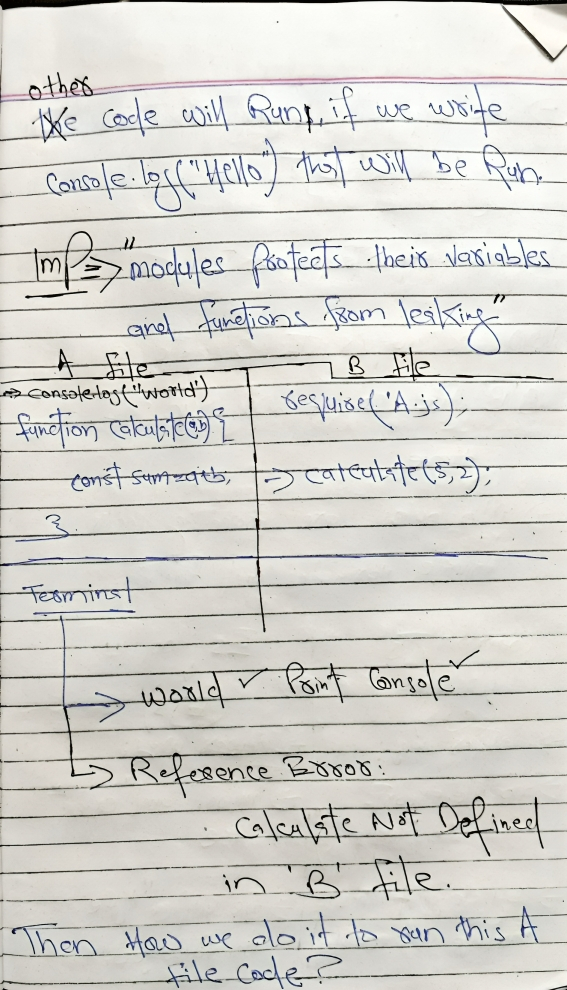 other
the code will Run, if we write
console.log("Hello") that will be Run.
Imp => "modules protects their variables
and functions from leaking"
A file
B file
=> console.log("World")
function calculate(a,b) {
const sum=a+b;
}
require('A.js);
=> calculate(5,2);
Terminal
World ✓ Print Console ✓
Reference Error:
Calculate Not Defined
in 'B' file.
Then How we do it to run this A
file Code?